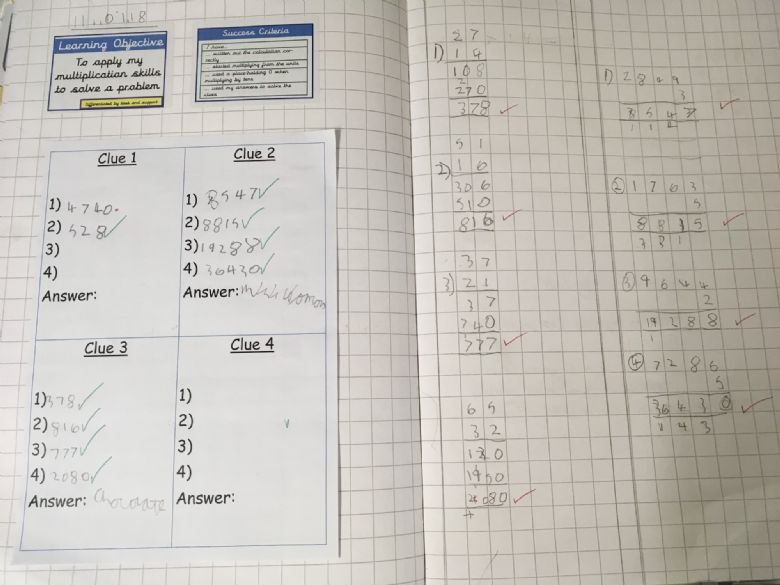 11.01.18
Learning Objective
To apply my
multiplication skills
to solve a problem
Differentiated by task and support
Success Criteria
I have...
... written out the calculation cor-
rectly
... started multiplying from the units
... used a place-holding 0 when
multiplying by tens
... used my answers to solve the
clues
Clue 1
1) 4740
2) 528
3)
4)
Answer:
Clue 2
1) 8547
2) 8815
3) 19288
4) 36430
Answer:
Clue 3
1) 378
2) 816
3) 777
4) 2080
Answer: Chocolate
Clue 4
1)
2)
3)
4)
Answer:
27
1) 14
108
2
270
378
51
2) 16
306
510
816
37
3) 21
37
740
777
65
32
130
1950
2080
+
1) 2849
3
8547
1 1 2
2 1763
5
8815
3 3 1
3 9644
2
19288
1
4 7286
5
36430
1 4 3